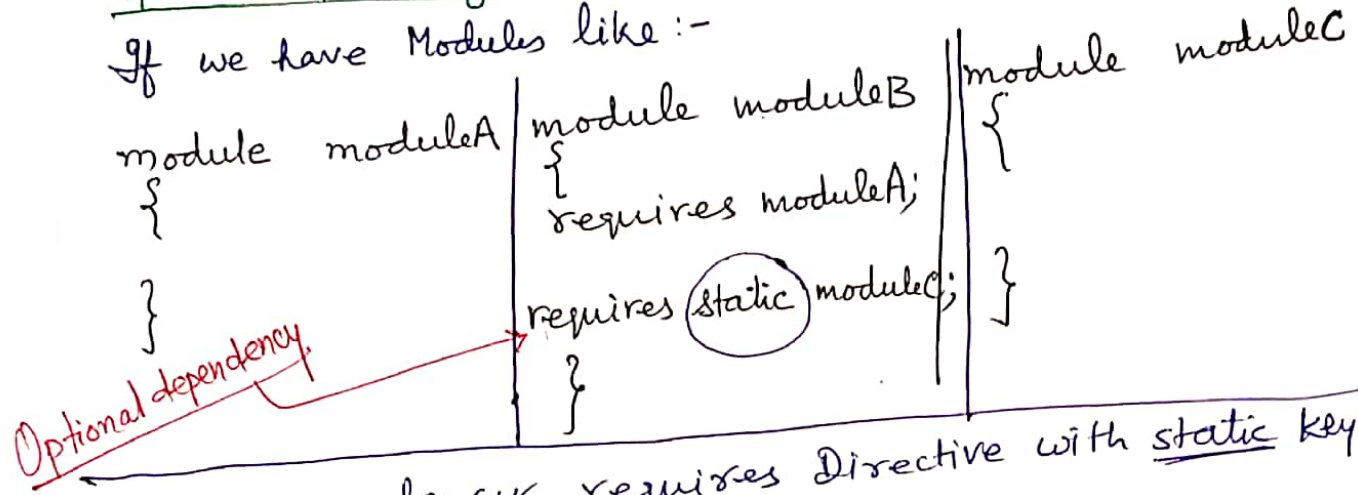 If we have Modules like :-
module moduleA
{
}
module moduleB
{
requires moduleA;
requires static moduleC;
}
module moduleC
{
}
Optional dependency.
requires Directive with static key